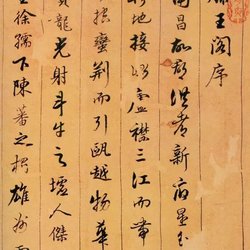 王閣序
南昌故郡洪都新府星分
地接衡廬襟三江而帶
控蠻荊而引甌越物華
寶龍光射斗牛之墟人傑
徐孺下陳蕃之榻雄州